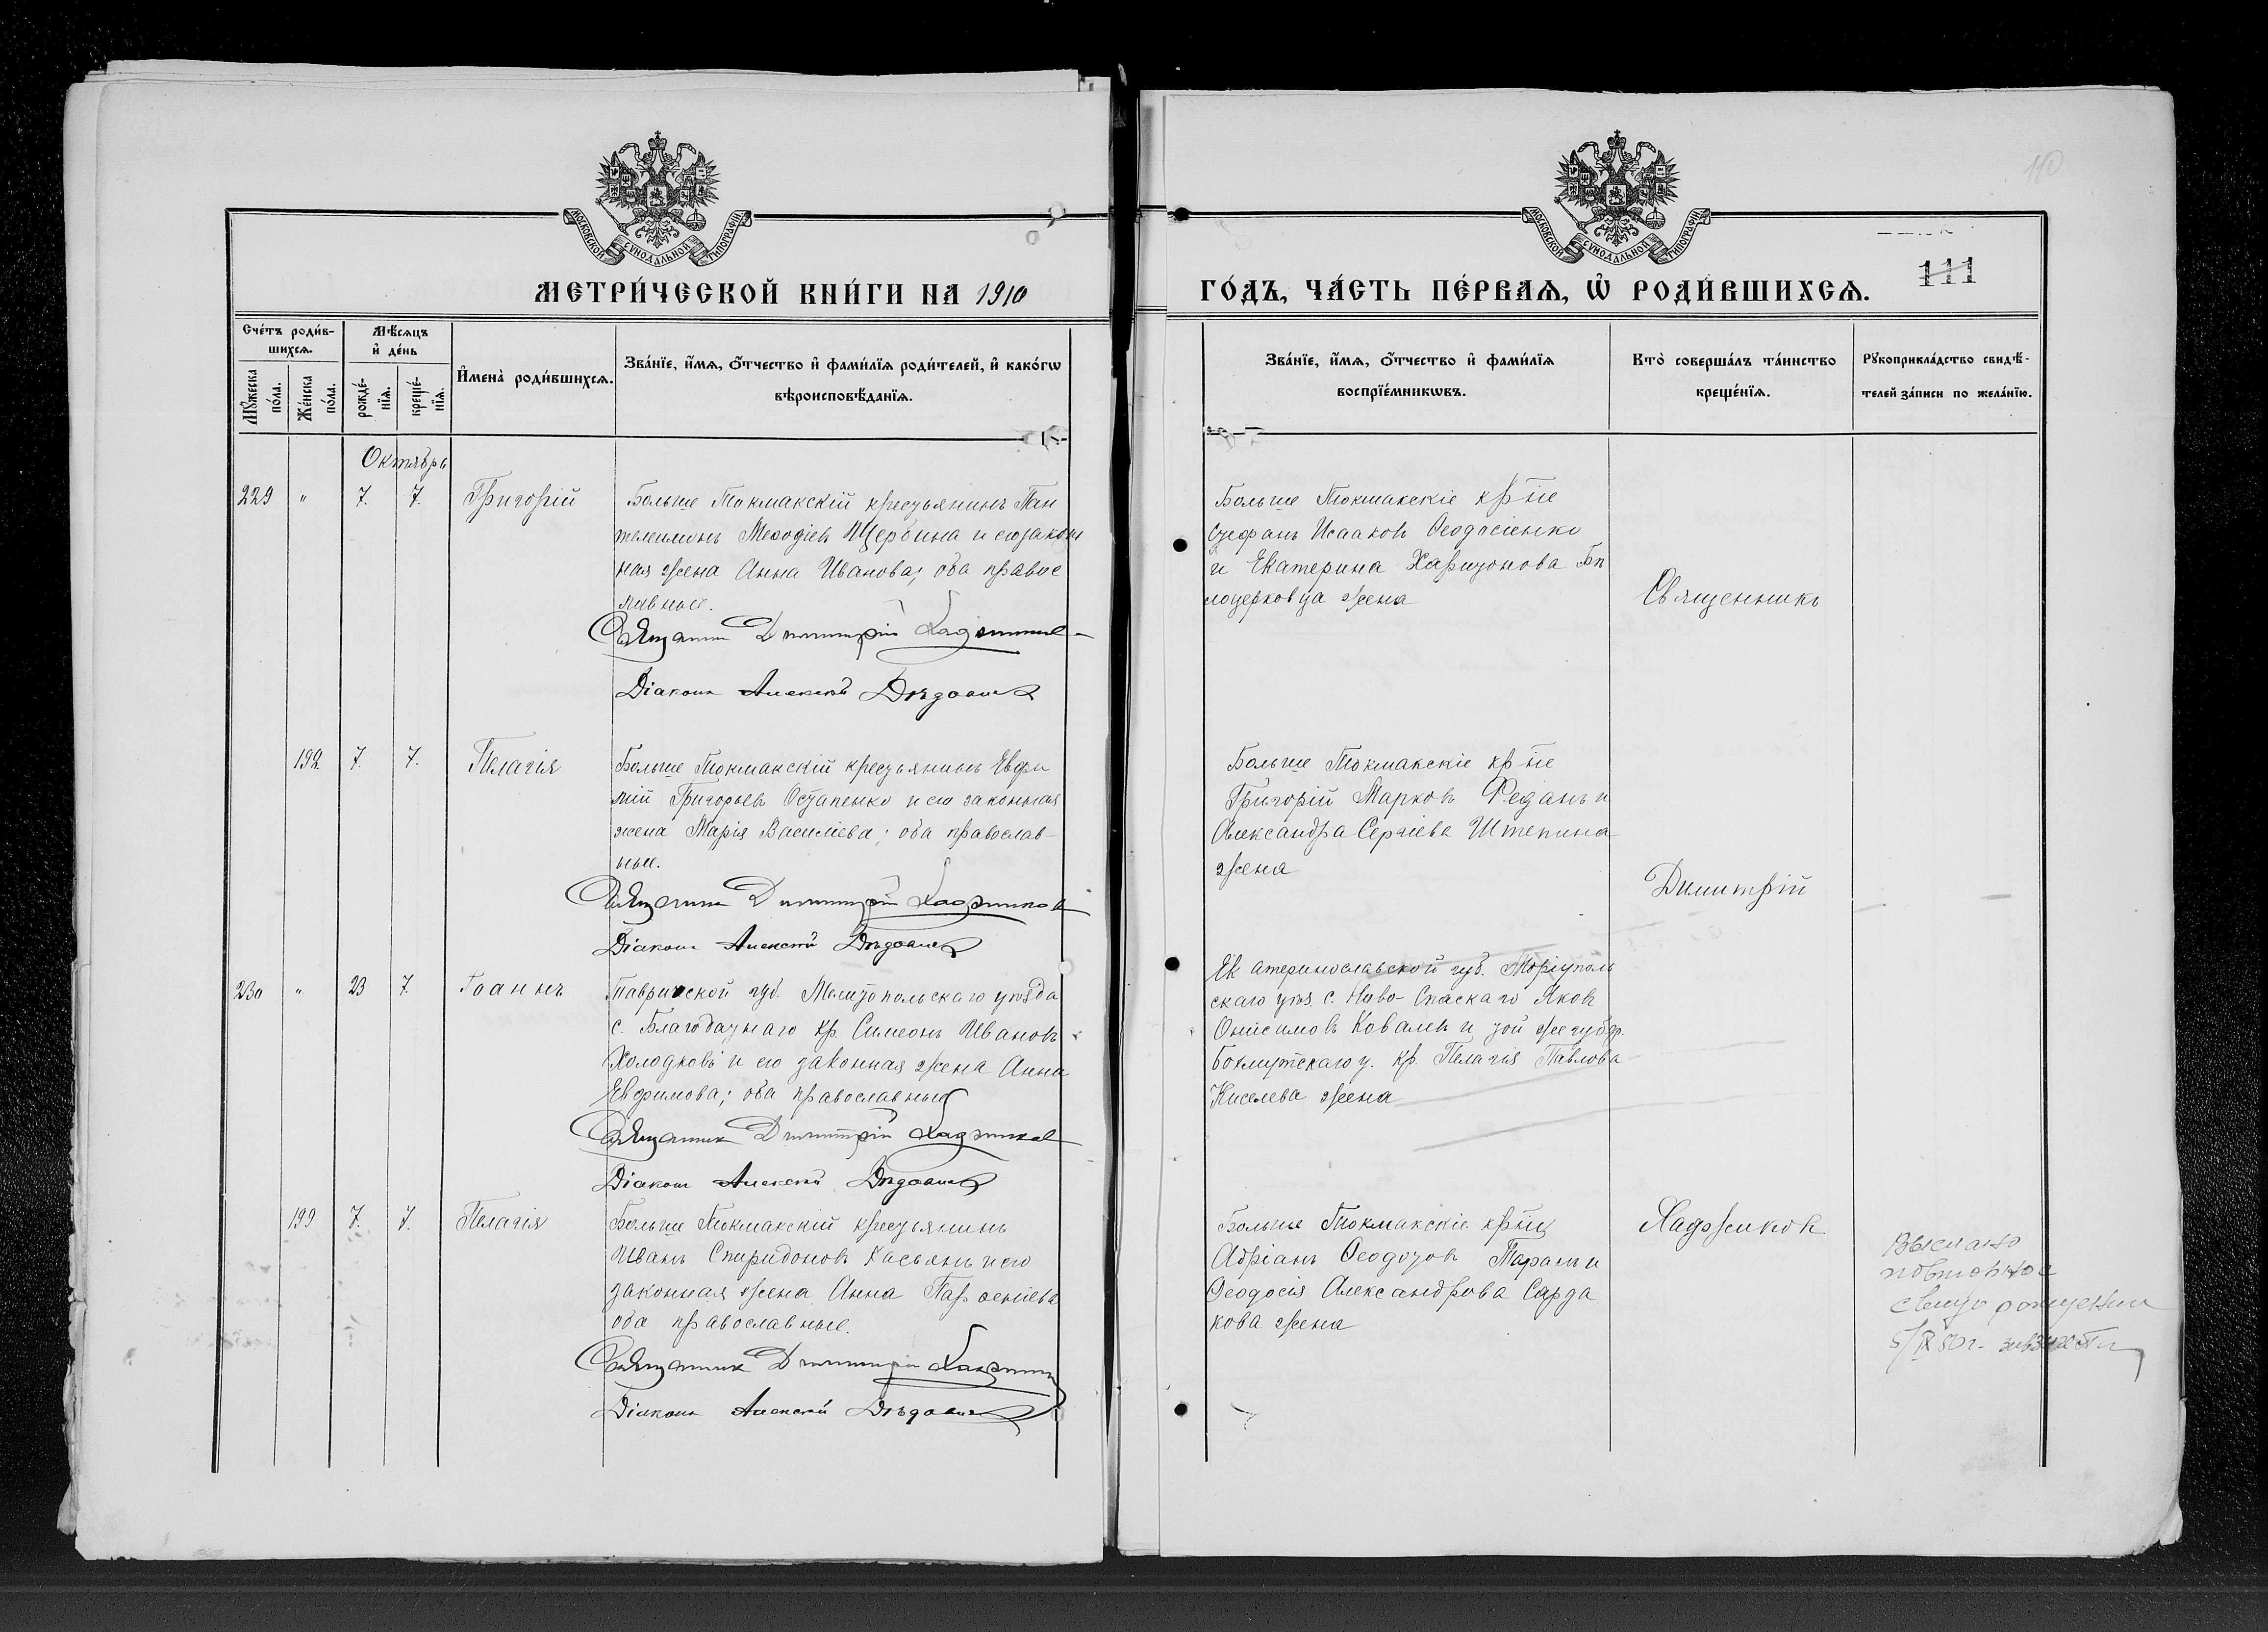 110
МОСКОВСКОЙ СѴНОДАЛЬНОЙ ТИПОГРАФІИ
МЕТРИ́ЧЕСКОЙ КНИ́ГИ НА 1910
Счéтъ роди́в-
шихсѧ.
Мѣ́сѧцъ
и҆ дéнь
Мꙋ́жеска
по́ла.
Же́нска
по́ла.
рождé-
нїѧ.
крещé-
нїѧ.
И҆мена̀ роди́вшихсѧ.
Зва́нїе, и҆́мѧ, ѻ҆́тчество и҆ фами́лїѧ роди́телей, и҆ како́гѡ
вѣроисповѣ́данїѧ.
Октябрь
229 " 7. 7. Григорій
Больше Токмакскій крестьянинъ Пан
телеимонъ Меѳодіевъ Щербина и его закон
ная жена Анна Иванова; оба правос
лавные.
Священник Димитрій Хаджинов
Діаконъ Алексѣй
192 7. 7. Пелагія
Больше Токмакскій крестьянинъ Евфи
мій Григорьевъ Остапенко и его законная
жена Марія Василіева; оба православ-
ные.
Священник Димитрій Хаджинов
Діаконъ Алексѣй
230 " 23 7. Іоаннъ
Таврической губ. Мелитопольскаго уѣзда
с. Благодатнаго кр. Симеонъ Ивановъ
Холодковъ и его законная жена Анна
Евфимова; оба православные
Священник Димитрій Хаджинов
Діаконъ Алексѣй
199 7. 7. Пелагія
Больше Токмакскій крестьянинъ
Иванъ Спиридоновъ Касьянъ и его
законная жена Анна Парѳеніева
оба православные.
Священник Димитрій Хаджинов
Діаконъ Алексѣй
МОСКОВСКОЙ СѴНОДАЛЬНОЙ ТИПОГРАФІИ
ГО́ДЪ, ЧА́СТЬ ПЕ́РВАѦ, Ѡ҆ РОДИ́ВШИХСѦ.
111
Зва́нїе, и҆́мѧ, ѻ҆́тчество и҆ фами́лїѧ
воспрїе́мникѡвъ.
Кто̀ соверша́лъ та́инство
креще́нїѧ.
Рꙋкоприкла́дство свидѣ́-
телей за́писи по жела́нїю.
Больше Токмакскіе кр-не
Стефанъ Исааковъ Ѳеодосіенко
и Екатерина Харитонова Бѣ
лоцерковца жена
Священникъ
Больше Токмакскіе кр-не
Григорій Марковъ Феданъ и
Александра Сергіева Штепина
жена
Димитрій
Екатеринославской губ. Маріуполь
скаго уѣз. с. Ново-Спаскаго Яковъ
Онисимовъ Ковалевъ и той же губ.
Бахмутскаго у. кр. Пелагія Павлова
Киселева жена
Больше Токмакскіе кр-не
Адріанъ Ѳеодотовъ Таранъ и
Ѳеодосія Александрова Сарда
кова жена
Хаджиновъ
Выслано
повторное
свид о рождении
5/IX 80 г.